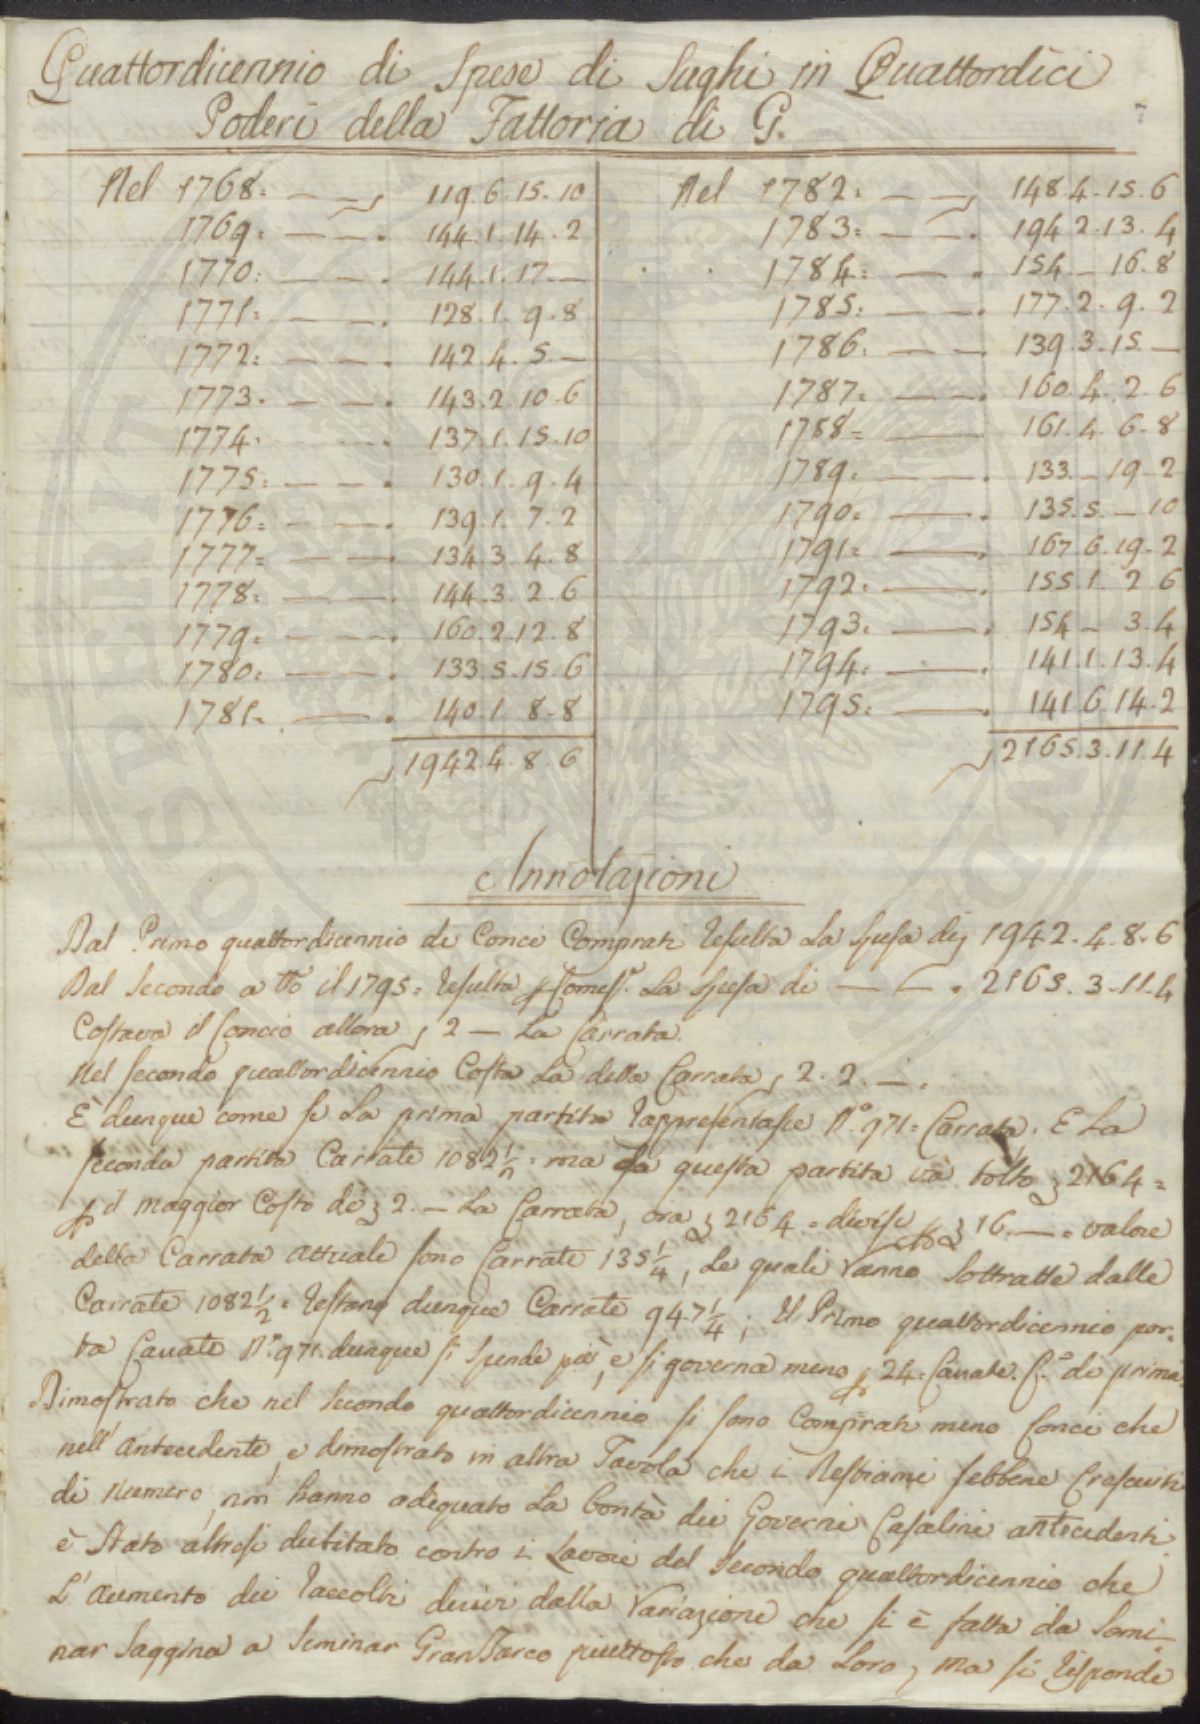 Quattordicennio di Spese di Sughi in Quattordici
Poderi della Fattoria di G.
Nel 1768= 119.6.15.10
1769= 144.1.14.2
1770= 144.1.17.—
1771= 128.1.9.8
1772= 142.4.5.—
1773= 143.2.10.6
1774= 137.1.15.10
1775= 130.1.9.4
1776= 139.1.7.2
1777= 134.3.4.8
1778= 144.3.2.6
1779= 160.2.12.8
1780= 133.5.15.6
1781= 140.1.8.8
1942.4.8.6
Nel 1782= 148.4.15.6
1783= 194.2.13.4
1784= 154.—16.8
1785= 177.2.9.2
1786= 139.3.15.—
1787= 160.4.2.6
1788= 161.4.6.8
1789= 133.—19.2
1790= 135.5.—10
1791= 167.6.19.2
1792= 155.1.2.6
1793= 154.—3.4
1794= 141.1.13.4
1795= 141.6.14.2
2165.3.11.4
Annotazioni
Dal Primo quattordicennio di Conci Comprati resulta La Spesa di 1942.4.8.6
Dal Secondo a tto il 1795= resulta La Spesa di — 2165.3.11.4
Costava il Concio allora 2 — La Carrata.
Nel secondo quattordicennio Costa La detta Carrata 2.2.—.
È dunque come se La prima partita rappresentasse N.° 971= Carrata. E La
seconda partita Carrate 1082½= ma da questa partita và tolto 2164=
p il maggior Costo di 2.— La Carrata, ora 2164= divise p 16.—. valore
della Carrata attuale sono Carrate 135¼, Le quali vanno Sottratte dalle
Carrate 1082½= restano dunque Carrate 947¼; Il Primo quattordicennio por=
ta Carrate N.° 971. dunque si Spende più, e si governa meno p 24= Carrate. di prima
Dimostrato che nel Secondo quattordicennio si sono Comprati meno Conci che
nell'antecedente, e dimostrato in altra Tavola che i Bestiami sebbene Cresciuti
di Numero, non hanno adequato La bontà dei Governi Casalini antecedenti.
è Stato altresì dubitato contro i Lavori del Secondo quattordicennio che
L'aumento dei raccolti derivi dalla Variazione che si è fatta da Semi=
nar Saggina a Seminar GranTurco piuttosto che da Loro, ma si risponde